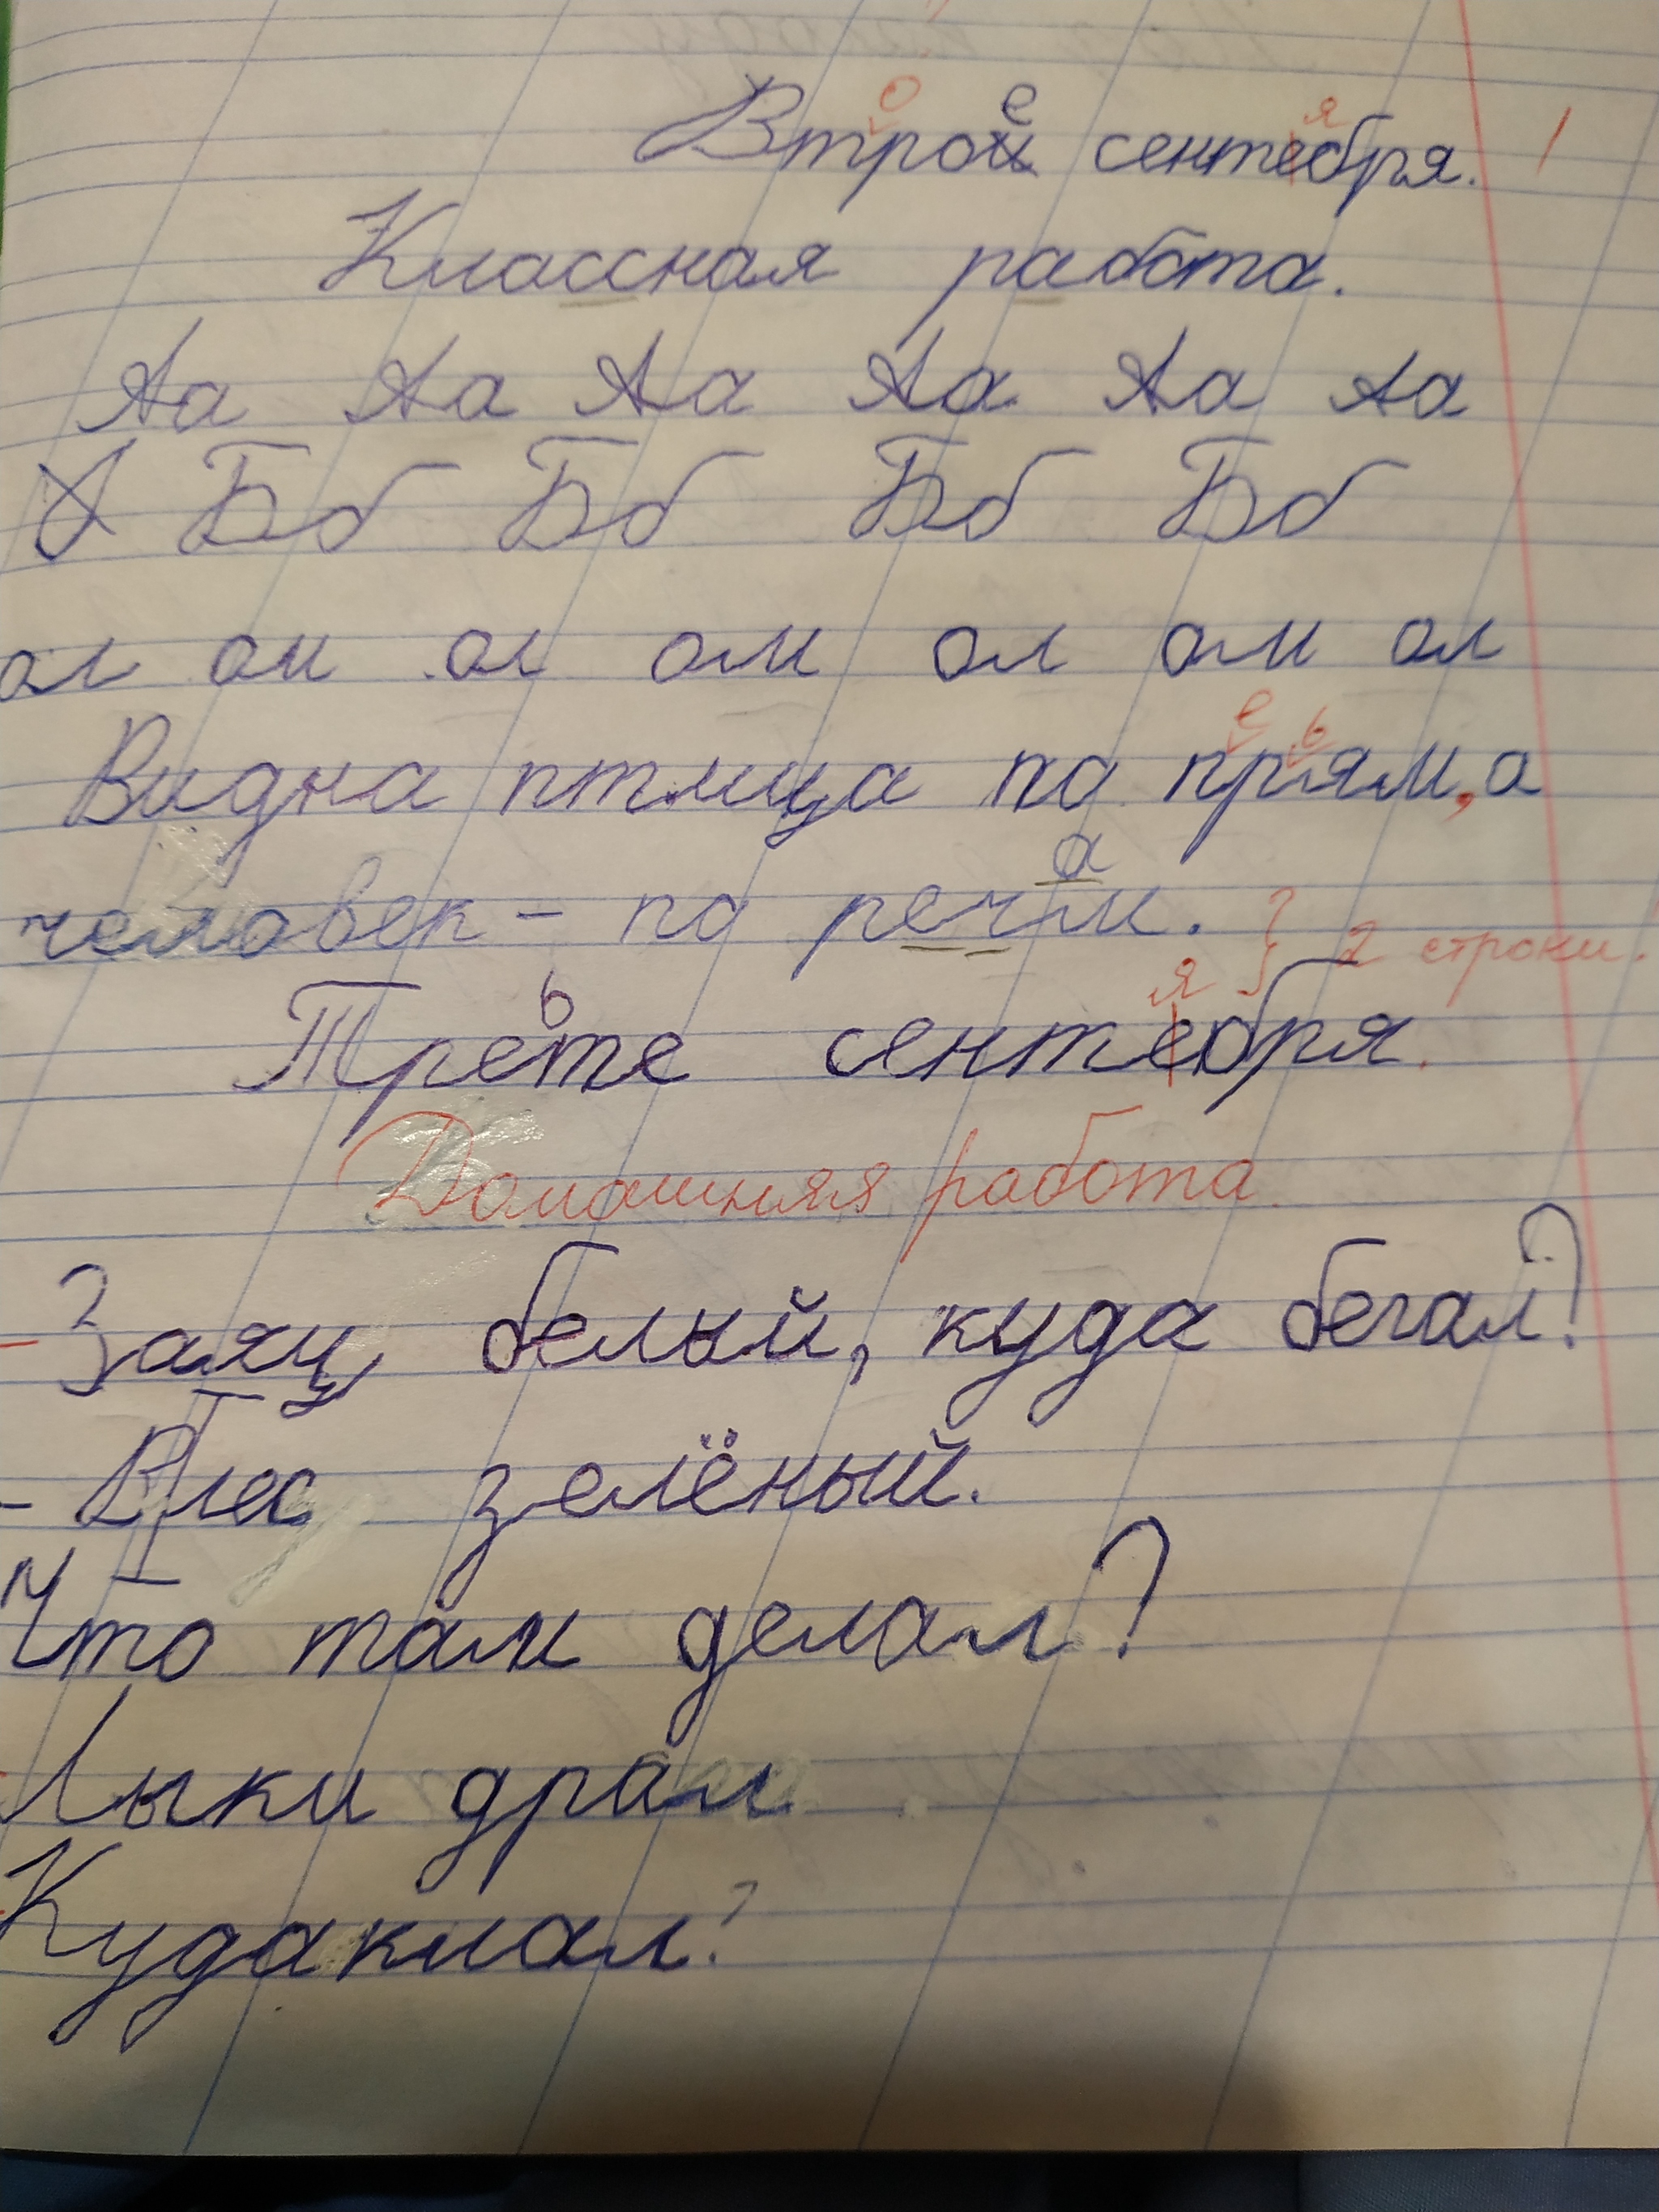 Втрое сентебря.
Классная работа.
Аа Аа Аа Аа Аа Аа
Бб Бб Бб Бб
ал ам ал ам ал ам ал
Видна птица по прям, а
человек - по речам.
2 строки.
Третье сентебря.
Домашняя работа.
- Заяц белый, куда бегал?
- В лес зелёный.
Что там делал?
Лыки драл
Куда клал?